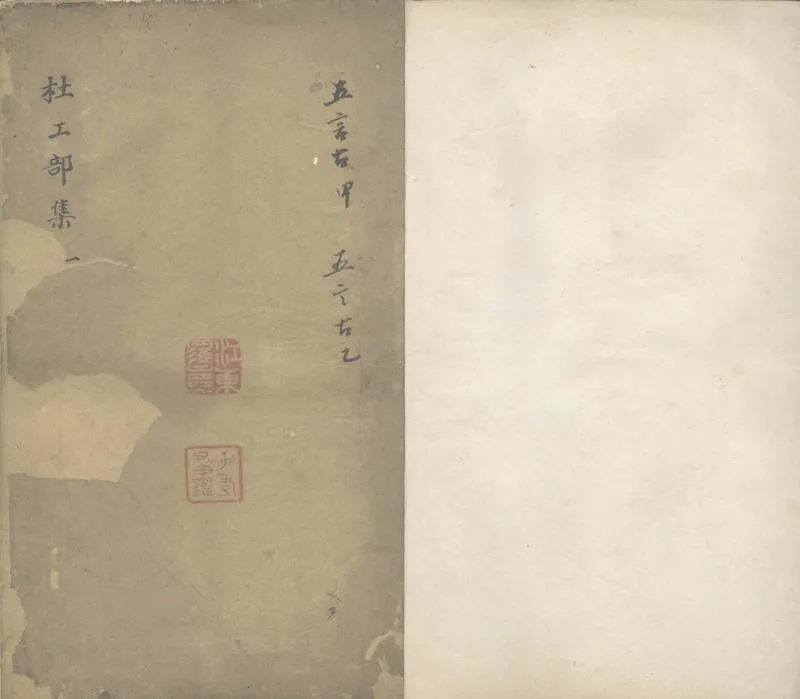 五言古甲　五言古乙
江東
杜工部集一